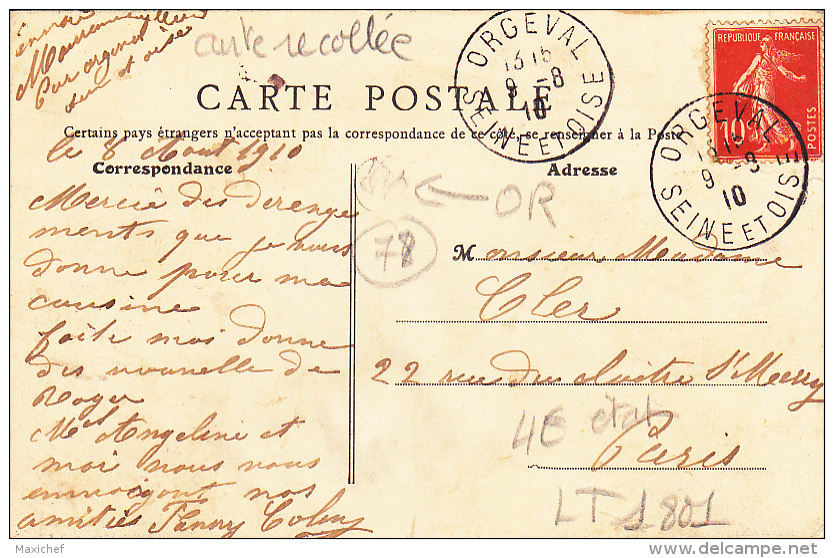 carte recollée
Par orgeval
seine et oise
CARTE POSTALE
Certains pays étrangers n'acceptent pas la correspondance de ce côté, se renseigner à la Poste
le 8 Aout 1910
Correspondance
Adresse
Mercie des derenge
ments que je vous
donne pour ma
cousine
faite moi donne
des nouvelle de
Roger
Mel Angeline et
moi nous vous
envoiyont nos
amitiés Fanny
Monsieur Madame
Cler
22 rue du Cloitre St Merry
Paris
OR
78
4€ etat
LT 1801
ORGEVAL
13 15
9 -8
10
SEINE ET OISE
ORGEVAL
13 15
9 -8
10
SEINE ET OISE
REPUBLIQUE FRANÇAISE
10
POSTES
Michef
delcampe.net